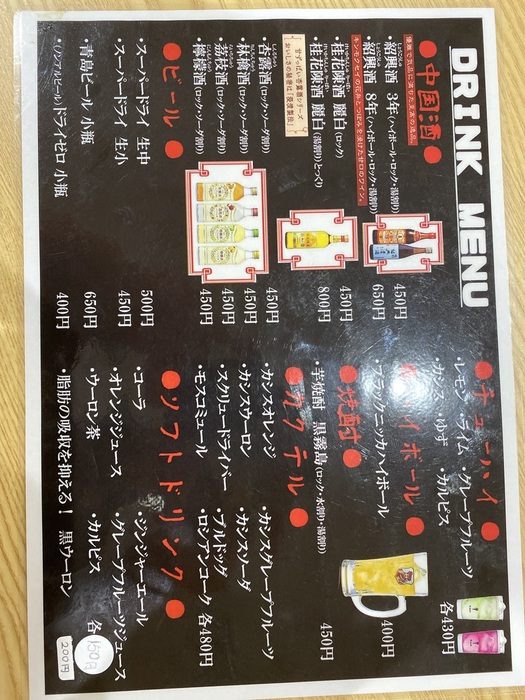 DRINK MENU
●中国酒●
優雅で気品に満ちた至高の逸品。
・紹興酒 3年(ハイボール・ロック・湯割り) 450円
・紹興酒 8年(ハイボール・ロック・湯割り) 650円
キンモクセイの花みとつぼみを漬けた甘口のワイン。
・桂花陳酒 麗白(ロック) 450円
・桂花陳酒 麗白(湯割り)とっくり 800円
甘ずっぱい杏露酒シリーズ
おいしさの秘密は「浸漬製法」
・杏露酒(ロック・ソーダ割り) 450円
・林檎酒(ロック・ソーダ割り) 450円
・茘枝酒(ロック・ソーダ割り) 450円
・檸檬酒(ロック・ソーダ割り) 450円
●ビール●
・スーパードライ 生中 500円
・スーパードライ 生小 450円
・青島ビール 小瓶 650円
・(ノンアルビール)ドライゼロ 小瓶 400円
●チューハイ●
・レモン ・ライム ・グレープフルーツ
・カシス ・ゆず ・カルピス 各430円
ハイボール●
・ブラックニッカハイボール 400円
●焼酎●
・芋焼酎 黒霧島(ロック・水割り・湯割り) 450円
●カクテル●
・カシスオレンジ ・カシスグレープフルーツ
・カシスウーロン ・カシスソーダ
・スクリュードライバー ・ブルドッグ
・モスコミュール ・ロシアンコーク 各480円
●ソフトドリンク●
・コーラ ・ジンジャーエール
・オレンジジュース ・グレープフルーツジュース
・ウーロン茶 ・カルピス 各150円
・脂肪の吸収を抑える! 黒ウーロン 200円